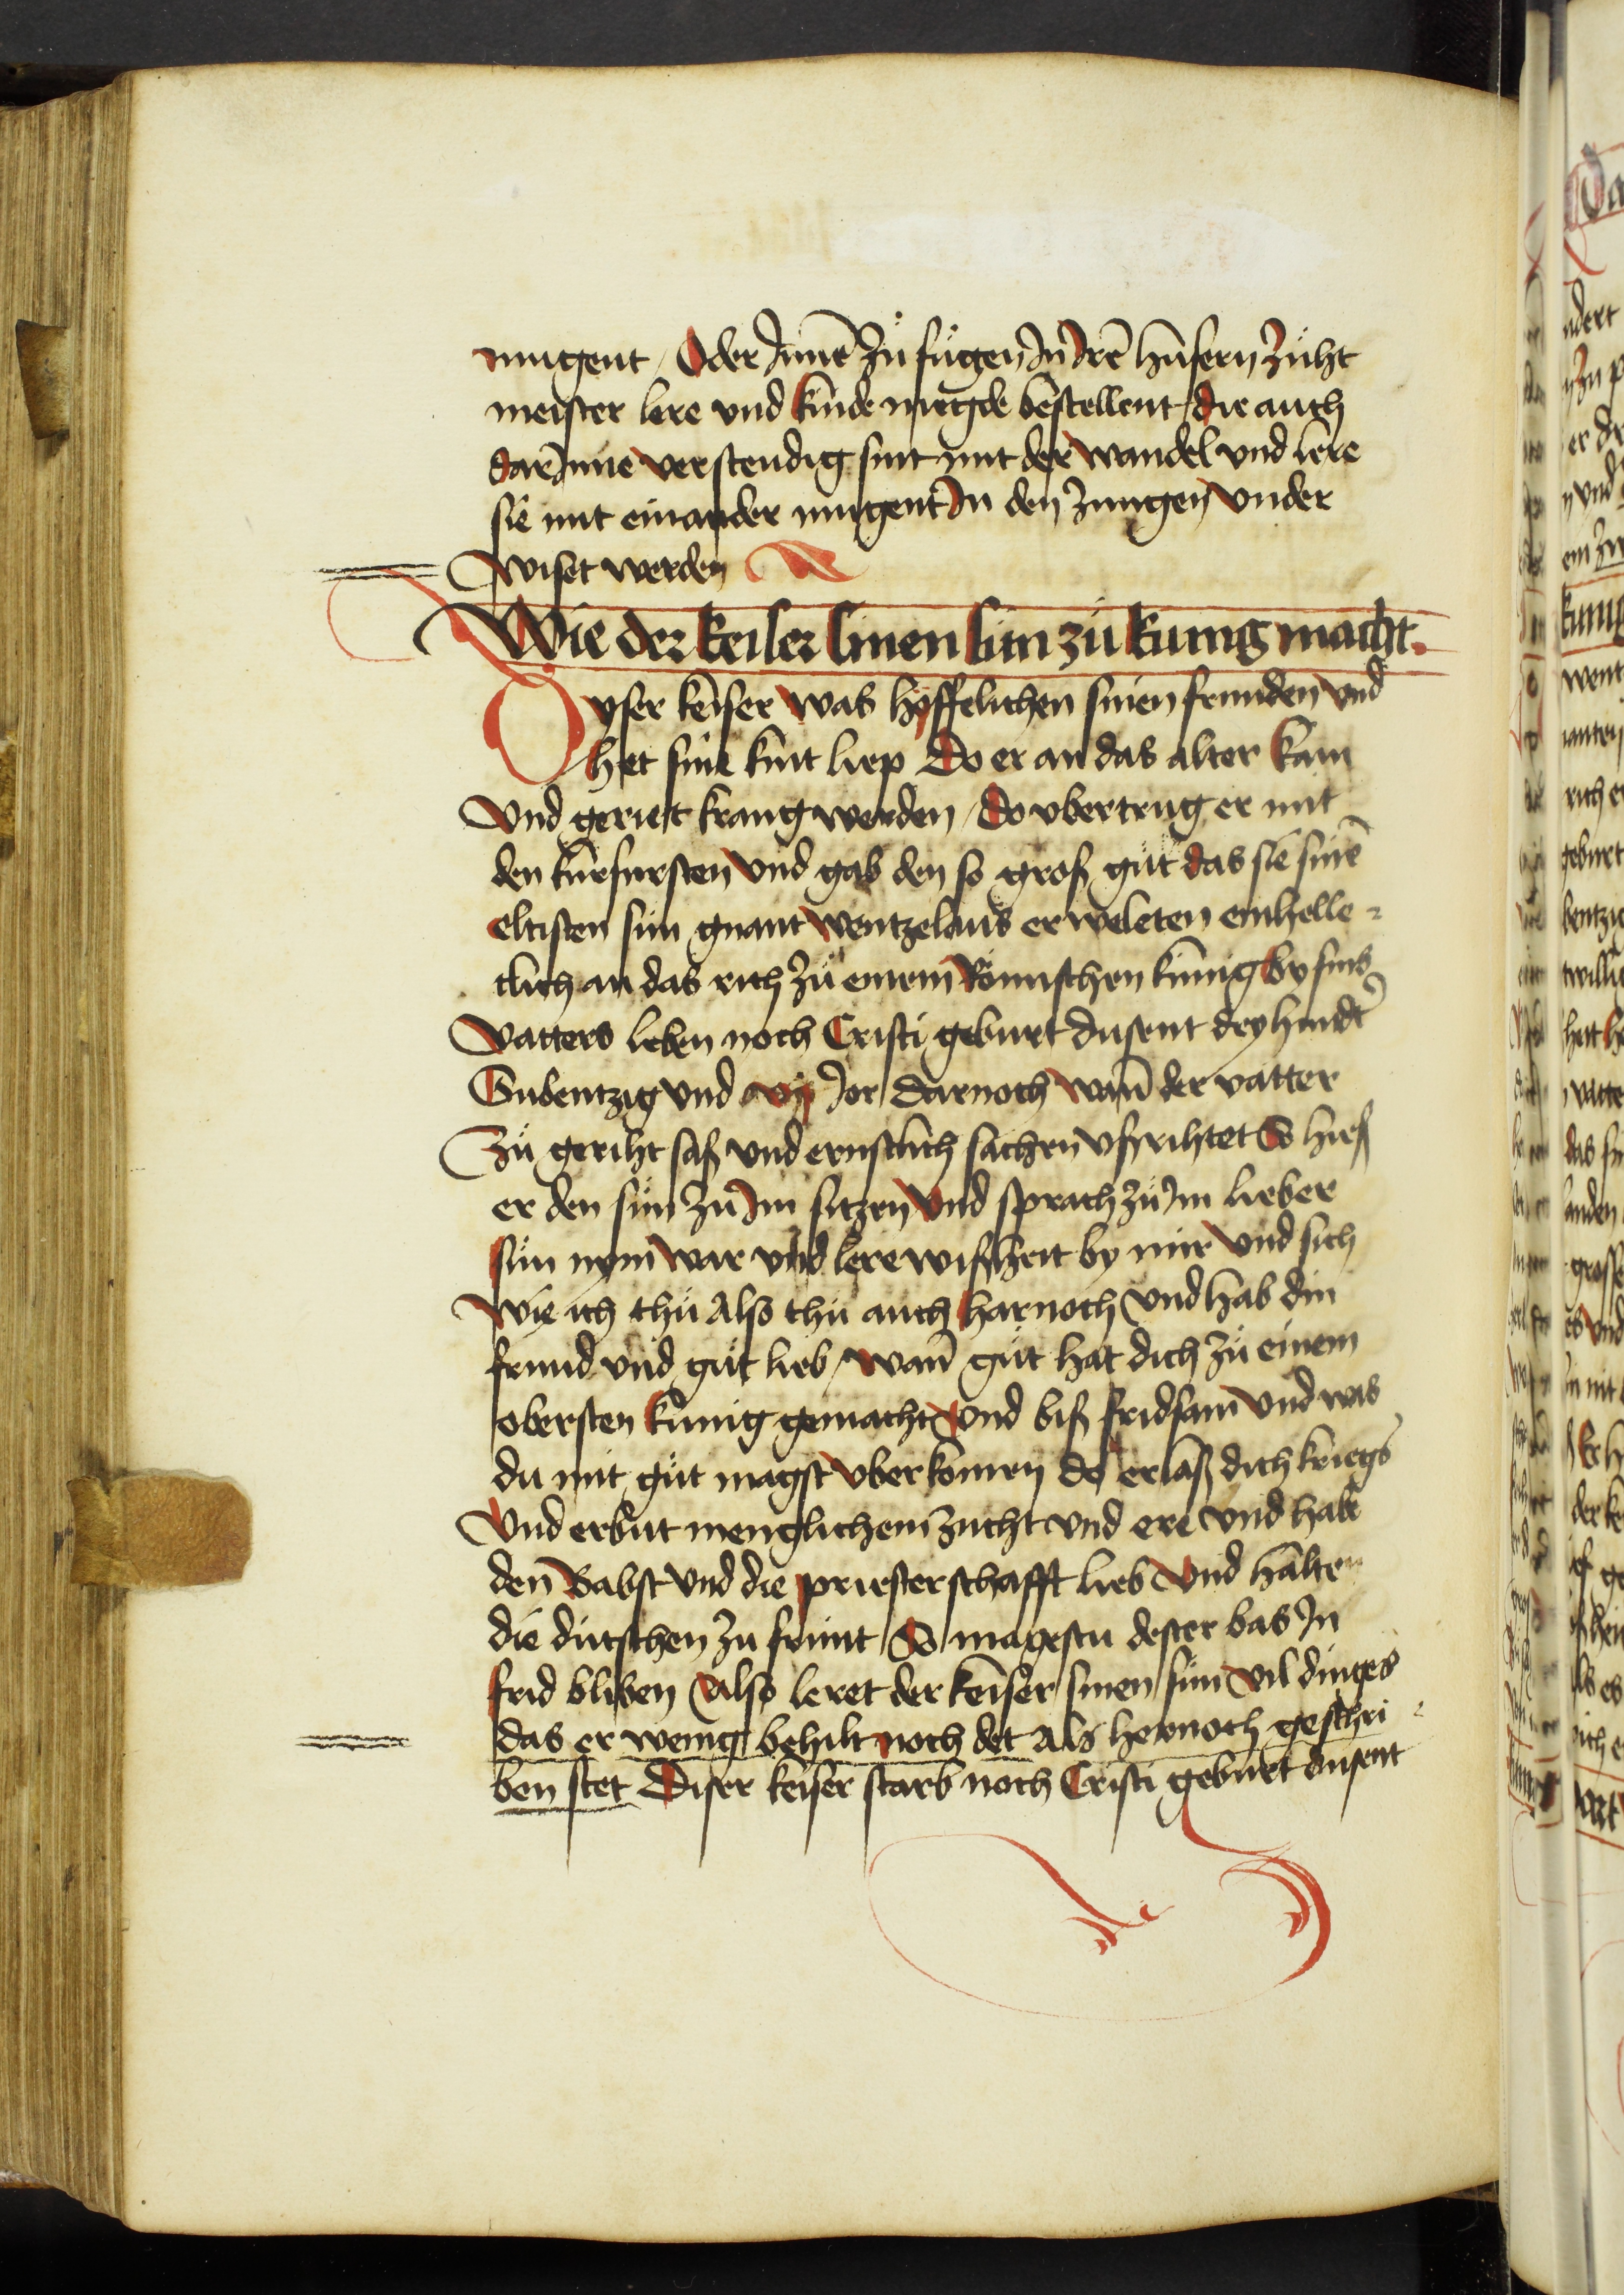 mugent / Oder Jnnē zů fůgen Jn Jrē husern zuht
meister lere vnd kinde megde bestellent / die auch
dar Jnne verstendig sint mit der wandel vnd lere
sie mit einander mugent Jn den zungen vnder
wiset werden
Wie der keiser sinen sun zů kunig macht
Dyser keiser was hyffelichen sinen frunden vnd
het sine kint liep Do er an das alter kam
Vnd geriet krang werden / do vbertrug er mit
den kurfursten vnd gab den so groß gůt das sie sinē
eltisten sun gnant wentzelaus erweleten einhelle=
clich an das rich zů einem Römischen kunig by sins
Vatters leben noch Cristi geburt dusent dryhundt
Subentzig vnd vj Jor Darnoch wan̄ der vatter
Zů geriht saß vnd ernstlich sachen vßrihtet So hieß
er den sůn zů Jm sitzen Vnd sprach zů Jm lieber
sůn nym war vnd lere wißheit by mir vnd sich
wie ich thů Also thů auch harnoch vnd hab din
frund vnd gůt lieb / wan̄ gůt hat dich zů einem
obersten kunig gemacht Vnd biß fridsam vnd was
du mit gůt magst vberkomen do erlaß dich kriegs
Vnd erbut menglichem zucht vnd ere vnd habe
den Babst vnd die priesterschafft lieb Vnd halten
die dutschen zu frunt So magestu dester bas Jn
frid bliben Also leret der keiser sinen sůn vil dinges
das er wenig behilt noch det Als hernoch geschri=
ben stet Diser keiser starb noch Cristi geburt dusent